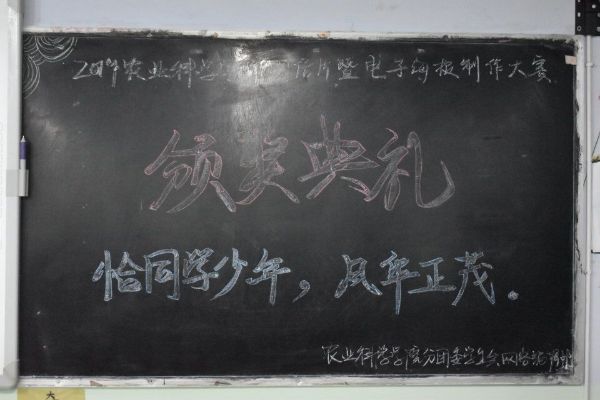 农业科学 暨电子海报制作大赛
颁奖典礼
恰同学少年，风华正茂。
农业科学学院分团委学生会网络